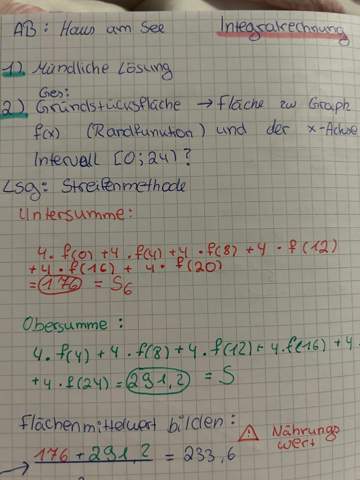 AB: Haus am See Integralrechnung
1) Mündliche Lösung
Ges:
2) Gründstücksfläche → Fläche zw Graph
f(x) (Randfunktion) und der x-Achse
Intervall [0; 24) ?
Lsg: Streifenmethode
Untersumme:
4·f(0) + 4·f(4) + 4·f(8) + 4·f(12)
+ 4·f(16) + 4·f(20)
= 176 = S6
Obersumme:
4·f(4) + 4·f(8) + 4·f(12) + 4·f(16) + 4
+ 4·f(24) = 291,2 = S
Flächenmittelwert bilden:
⚠ Nährungswert
176 + 291,2 = 233,6